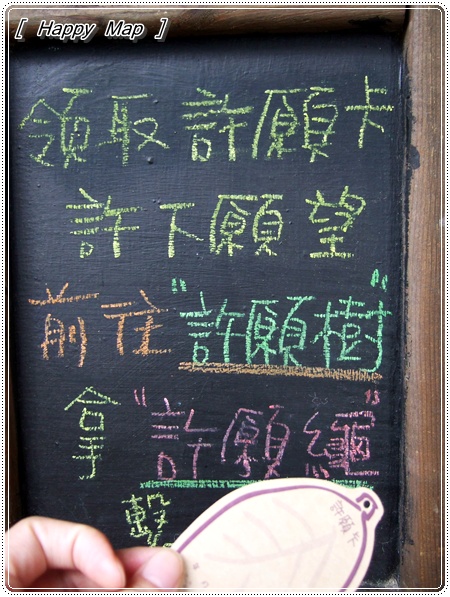 [ Happy Map ]
領取許願卡
許下願望
前往"許願樹"
合手"許願繩"
繫
許願卡